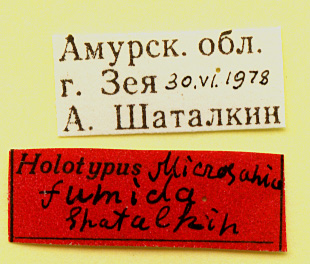 Амурск. обл.
г. Зея 30.VI.1978
А. Шаталкин
Holotypus Microsania
fumida
Shatalkin